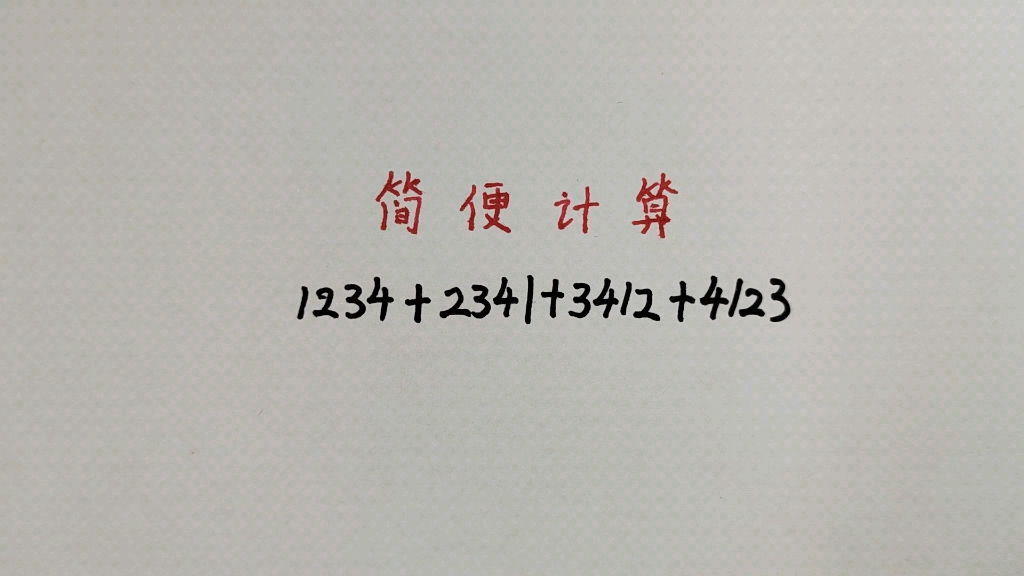 简便计算
1234+2341+3412+4123